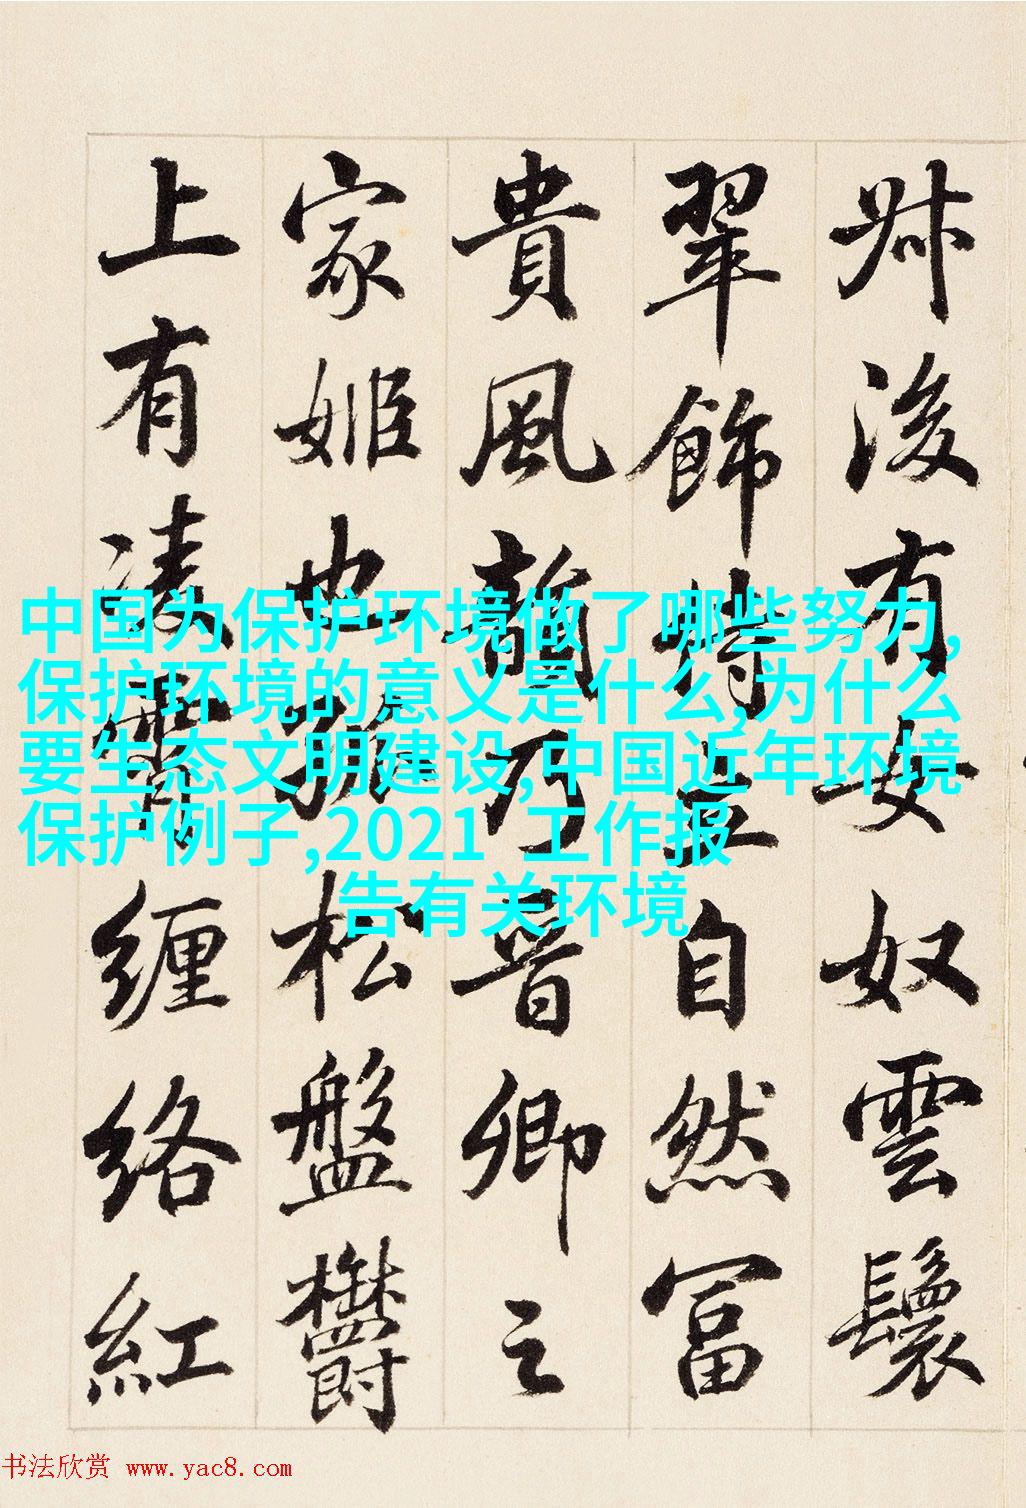 叔後有女奴雲鬟
翠飾侍立自然冨
貴風韻乃晉卿之
家姬也孤松盤欝
上有凌霄纏絡紅
中国为保护环境做了哪些努力,
保护环境的意义是什么,为什么
要生态文明建设,中国近年环境
保护例子,2021 工作报
告有关环境
书法欣赏 www.yac8.com